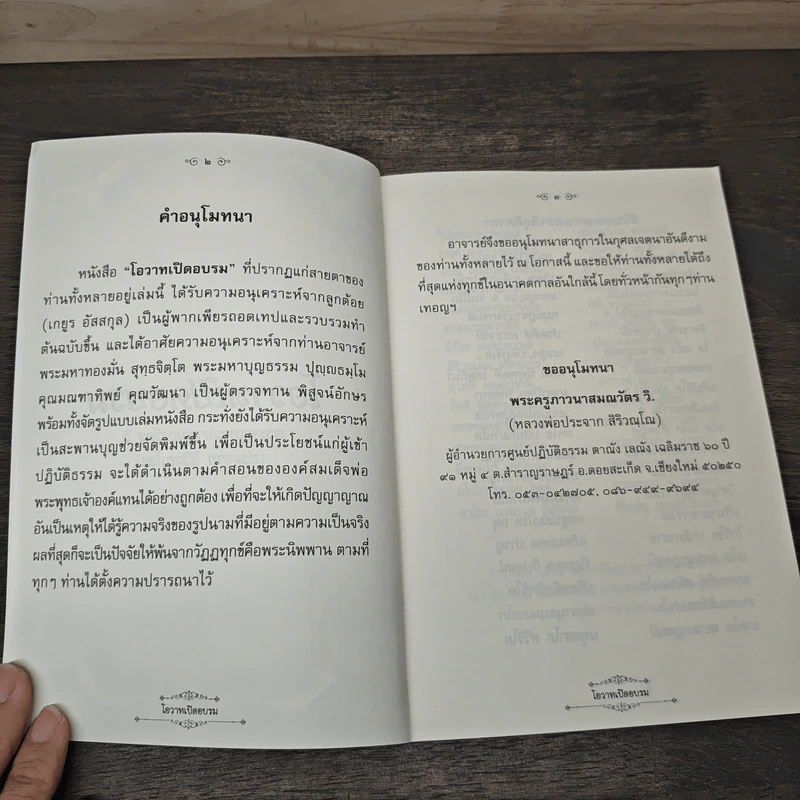 ๒
คำอนุโมทนา
หนังสือ “โอวาทเปิดอบรม” ที่ปรากฏแก่สายตาของ
ท่านทั้งหลายอยู่เล่มนี้ ได้รับความอนุเคราะห์จากลูกต้อย
(เกยูร อัสสกุล) เป็นผู้พากเพียรถอดเทปและรวบรวมทำ
ต้นฉบับขึ้น และได้อาศัยความอนุเคราะห์จากท่านอาจารย์
พระมหาทองมั่น สุทฺธจิตฺโต พระมหาบุญธรรม ปุญฺญธมฺโม
คุณมณฑาทิพย์ คุณวัฒนา เป็นผู้ตรวจทาน พิสูจน์อักษร
พร้อมทั้งจัดรูปแบบเล่มหนังสือ กระทั่งยังได้รับความอนุเคราะห์
เป็นสะพานบุญช่วยจัดพิมพ์ขึ้น เพื่อเป็นประโยชน์แก่ผู้เข้า
ปฏิบัติธรรม จะได้ดำเนินตามคำสอนขององค์สมเด็จพ่อ
พระพุทธเจ้าองค์แทนได้อย่างถูกต้อง เพื่อที่จะให้เกิดปัญญาญาณ
อันเป็นเหตุให้ได้รู้ความจริงของรูปนามที่มีอยู่ตามความเป็นจริง
ผลที่สุดก็จะเป็นปัจจัยให้พ้นจากวัฏฏทุกข์คือพระนิพพาน ตามที่
ทุกๆ ท่านได้ตั้งความปรารถนาไว้
โอวาทเปิดอบรม
๓
อาจารย์จึงขออนุโมทนาสาธุการในกุศลเจตนาอันดีงาม
ของท่านทั้งหลายไว้ ณ โอกาสนี้ และขอให้ท่านทั้งหลายได้ถึง
ที่สุดแห่งทุกข์ในอนาคตกาลอันใกล้นี้ โดยทั่วหน้ากันทุกๆท่าน
เทอญฯ
ขออนุโมทนา
พระครูภาวนาสมณวัตร วิ.
(หลวงพ่อประจาก สิริวณฺโณ)
ผู้อำนวยการศูนย์ปฏิบัติธรรม ตาณัง เลณัง เฉลิมราช ๖๐ ปี
๙๑ หมู่ ๔ ต.สำราญราษฎร์ อ.ดอยสะเก็ด จ.เชียงใหม่ ๕๐๒๕๐
โทร. ๐๕๓-๐๔๒๗๐๕, ๐๘๖-๙๔๙-๙๖๙๔
โอวาทเปิดอบรม